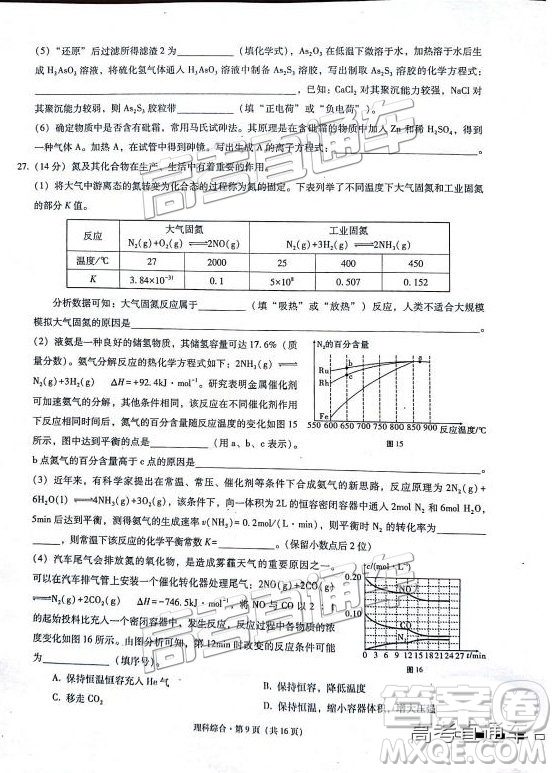 (5) “还原”后过滤所得滤渣 2 为________（填化学式），As₂O₃ 在低温下微溶于水，加热溶于水生成
H₃AsO₃ 溶液，将硫化氢气体通入 H₃AsO₃ 溶液中制备 As₂S₃ 溶胶，写出制取 As₂S₃ 的化学方程式：
________________，已知：CaCl₂ 对其聚沉能力较强，NaCl 对
其聚沉能力较弱，则 As₂S₃ 胶粒带________（填“正电荷”或“负电荷”）。
(6) 确定物质中是否含有砒霜，常用马氏试砷法。其原理是在含砒霜的物质中加入 Zn 和稀 H₂SO₄，得到
一种气体 A。写出 A 的离子方程式：________________。
27.（14 分）氮及其化合物在生产、生活中有着重要的作用。
(1) 将大气中游离态的氮转变为化合态的过程称为氮的固定。下表列举了不同温度下大气固氮和工业固氮
的部分 K 值。
反应 大气固氮 工业固氮
N₂(g)+O₂(g)⇌2NO(g) N₂(g)+3H₂(g)⇌2NH₃(g)
温度/℃ 27 2000 25 400 450
K 3.84×10⁻³¹ 0.1 5×10⁸ 0.507 0.152
分析数据可知：大气固氮反应属于________（填“吸热”或“放热”）反应，人类不适合大规模
模拟大气固氮的原因是________________。
(2) 液氨是一种良好的储氢物质，其储氢容量可达 17.6%（质
量分数）。氨气分解反应的热化学方程式如下：2NH₃(g)⇌
N₂(g)+3H₂(g) ΔH=+92.4kJ·mol⁻¹. 研究表明金属催化剂
可加速氨气的分解，其他条件相同，该反应在不同催化剂
下反应相同时间后，氮气的百分含量随反应温度的变化如图 15
所示。图中达到平衡的点是________（用 a、b、c 表示）。
b 点氮气的百分含量高于 c 点的原因是________________。
N₂的百分含量
Ru
Rh
Fe
b
c
a
550 600 650 700 750 800 850 900
反应温度/℃
图 15
(3) 近年来，有科学家提出在常温、常压、催化剂等条件下合成氨气的新思路，反应原理为 2N₂(g)+
6H₂O(l)⇌4NH₃(g)+3O₂(g)，该条件下，向一体积为 2L 的恒容密闭容器中通入 2mol N₂ 和 6mol H₂O，
5min 后达到平衡，测得氨气的生成速率 v(NH₃)=0.2mol/(L·min)，则平衡时 N₂ 的转化率为________，
则平衡常数 K=________。（保留小数点后 2 位）
(4) 汽车尾气会排放氮的氧化物，是造成雾霾天气的重要原因之一。
可以在汽车排气管上安装一个催化转化器处理尾气：2NO(g)+2CO(g)⇌
N₂(g)+2CO₂(g) ΔH=-746.5kJ·mol⁻¹，将 NO 与 CO 以
的起始投料比充入一个密闭容器中，发生反应，反应过程中各物质的浓度
变化如图 16 所示。由图分析可知，第 12min 时改变的反应条件可能为
________（填序号）。
c/(mol·L⁻¹)
0.20
0.10
0.00
NO
CO
N₂
0 3 6 9 12 15 18 21 24 27 t/min
图 16
A. 保持恒温恒容充入 He 气 B. 保持恒容，降低温度
C. 移走 CO₂ D. 保持恒温，缩小容器体积，增大压强
理科综合·第 9 页（共 16 页）
高考直通车
高考直通车
答案圈
高考直通车